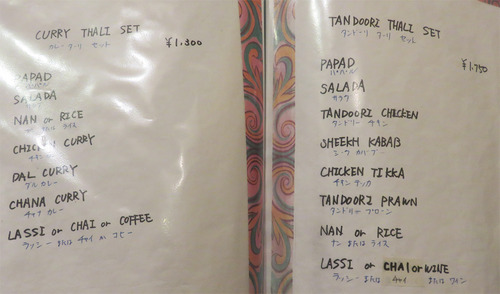 CURRY THALI SET
カレー ターリ セット
¥1,300
PAPAD
パパル
SALADA
NAN or RICE
または ライス
CHICKEN CURRY
チキン
DAL CURRY
ダル カレー
CHANA CURRY
チャナ カレー
LASSI or CHAI or COFFEE
ラッシー または チャイ コーヒー
TANDOORI THALI SET
タンドーリ ターリ セット
¥1,750
PAPAD
パパル
SALADA
サラダ
TANDOORI CHICKEN
タンドリー チキン
SHEEKH KABAB
シーク カバブー
CHICKEN TIKKA
チキン テッカ
TANDOORI PRAWN
タンドリー プローン
NAN or RICE
ナン または ライス
LASSI or CHAI or WINE
ラッシー または チャイ または ワイン